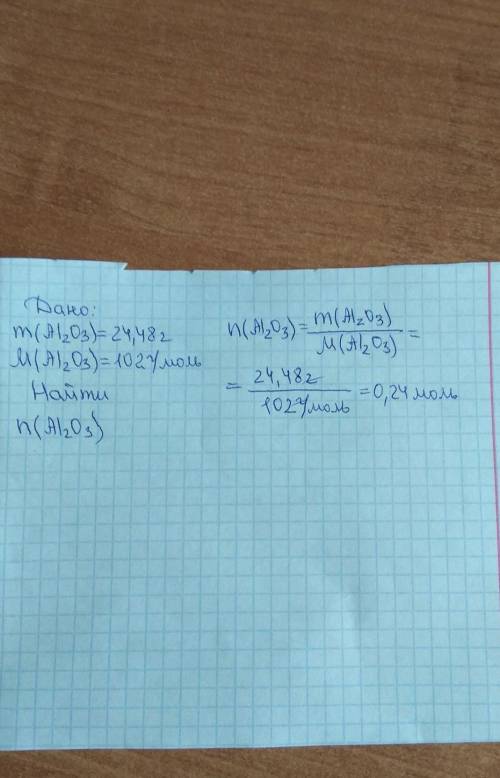 Дано:
m(Al₂O₃)=24,48г
M(Al₂O₃)=102г/моль
Найти
n(Al₂O₃)
n(Al₂O₃)=m(Al₂O₃)/M(Al₂O₃)=
=24,48г/102г/моль=0,24моль